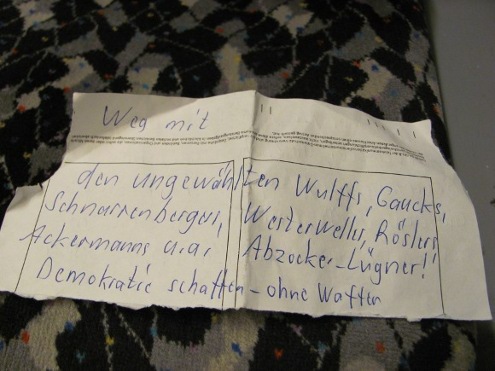 Weg mit
den ungewählten Wulffs, Gaucks,
Schnarrenbergers, Westerwelles, Röslers
Ackermanns u.a. Abzocker-Lügner!
Demokratie schaffen - ohne Waffen